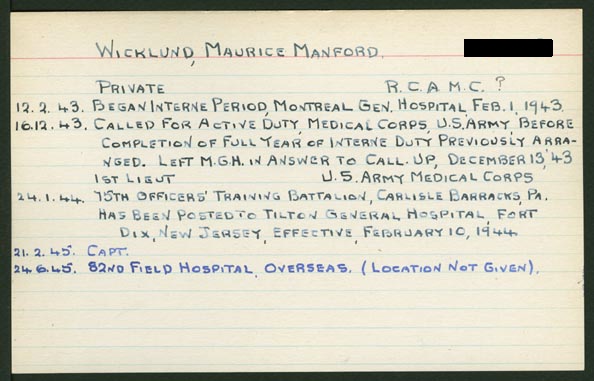 WICKLUND, MAURICE MANFORD.
PRIVATE R.C.A M.C. ?
12.2.43. BEGAN INTERNE PERIOD, MONTREAL GEN. HOSPITAL, FEB. 1, 1943.
16.12.43. CALLED FOR ACTIVE DUTY, MEDICAL CORPS, U.S. ARMY, BEFORE
COMPLETION OF FULL YEAR OF INTERNE DUTY PREVIOUSLY ARRA-
NGED. LEFT M.G.H. IN ANSWER TO CALL. UP, DECEMBER 13,'43
1ST LIEUT U.S. ARMY MEDICAL CORPS
24.1.44. 75TH OFFICERS' TRAINING BATTALION, CARLISLE BARRACKS, PA.
HAS BEEN POSTED TO TILTON GENERAL HOSPITAL, FORT
DIX, NEW JERSEY, EFFECTIVE, FEBRUARY 10, 1944
21.2.45. CAPT.
24.6.45. 82ND FIELD HOSPITAL, OVERSEAS. (LOCATION NOT GIVEN).